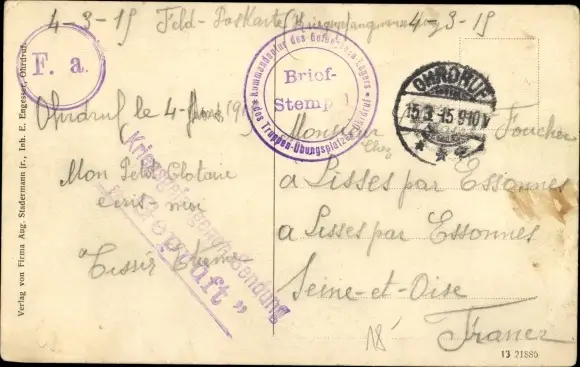 4-3-15 Feld-Postkarte (Kriegsgefangenen 4-3-15
F. a.
Kommandantur des Gefangenen-Lagers
des Truppen-Übungsplatzes Ohrdruf
Brief-
Stempel
OHRDRUF
15.3.15.9-10V
Ohrdruf le 4- Mars 1915
Mon Petit Clotaire
écris-moi
Tissier Etienne
Kriegsgefangenensendung
„Geprüft"
Monsieur Foucher
Chez
à Lisses par Essonnes
à Lisses par Essonnes
Seine-et-Oise
France
18
13 21886
Verlag von Firma Aug. Stadermann jr., Inh. E. Engesser, Ohrdruf.